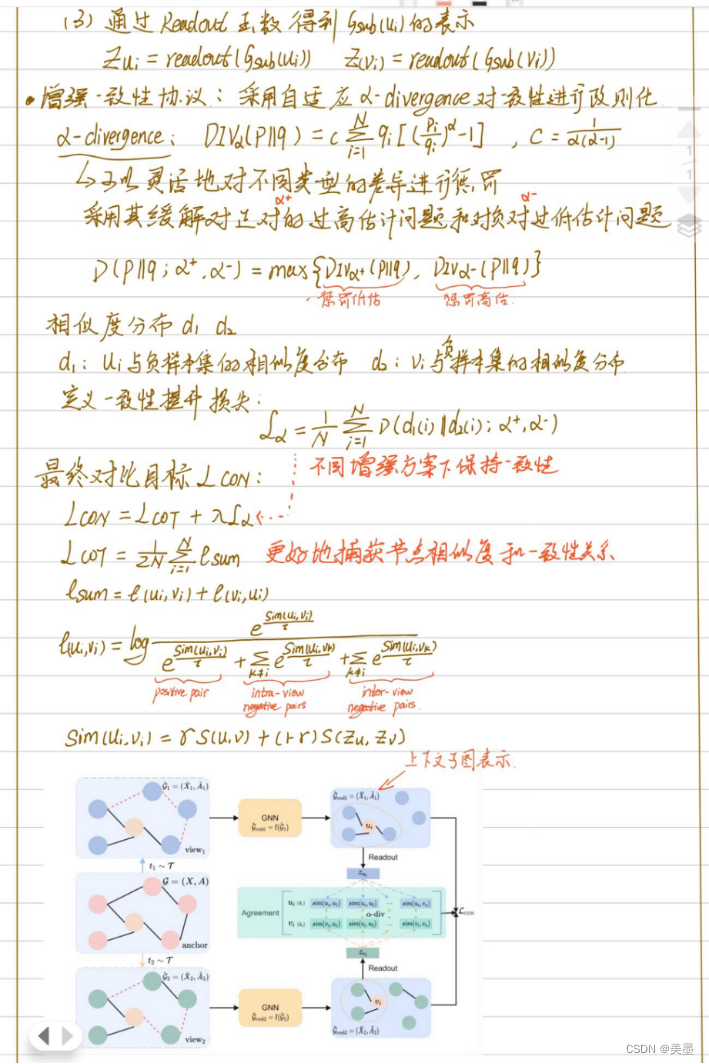 (3) 通过 Readout 函数 得到 Gsub(ui) 的表示
Zui = readout(Gsub(ui)) Z(vi) = readout(Gsub(vi))
• 增强一致性协议: 采用自适应 α-divergence 对一致性进行改则化
α-divergence: DIVα(P||q) = c ∑_{i=1}^{N} qi[(pi/qi)^α - 1] , C = 1/(α(α-1))
↳可以灵活地对不同类型的差异进行惩罚
α+ α-
采用其缓解对正对的过高估计问题和对负对过低估计问题
D(P||q; α+, α-) = max{DIVα+(P||q), DIVα-(P||q)}
惩罚低估 惩罚高估.
相似度分布 d1 d2
d1: ui 与负样本集的相似度分布 d2: vi 与负样本集的相似度分布
定义一致性提升损失:
Lα = 1/N ∑_{i=1}^{N} D(d1(i)||d2(i); α+, α-)
最终对比目标 LCON: 不同增强方案下保持一致性
LCON = LCOT + λLα
LCOT = 1/2N ∑_{i=1}^{N} lsum 更好地捕获节点相似度和一致性关系
lsum = l(ui,vi) + l(vi,ui)
l(ui,vi) = log e^{Sim(ui,vi)/τ} / (e^{Sim(ui,vi)/τ} + ∑_{k≠i} e^{Sim(ui,uk)/τ} + ∑_{k≠i} e^{Sim(ui,vk)/τ})
positive pair intra-view negative pairs inter-view negative pairs.
Sim(ui,vi) = γS(u,v) + (1-γ)S(Zu, Zv)
上下文子图表示.
G̃1 = (X̃1, Ã1)
view1
GNN
G̃emd1 = f(G̃1)
G̃emd1 = (X̃1, Ã1)
ui
t1 ~ T
Readout
zui
G = (X, A)
anchor
Agreement
ui (d1) sim(ui, u1) sim(ui, uj) ... sim(ui, un)
α-div
vi (d2) sim(vi, v1) sim(vi, vj) ... sim(vi, vn)
Lcon
t2 ~ T
zvi
Readout
G̃2 = (X̃2, Ã2)
view2
GNN
G̃emd2 = f(G̃2)
vi
G̃emd2 = (X̃2, Ã2)
1/1
CSDN @美墨